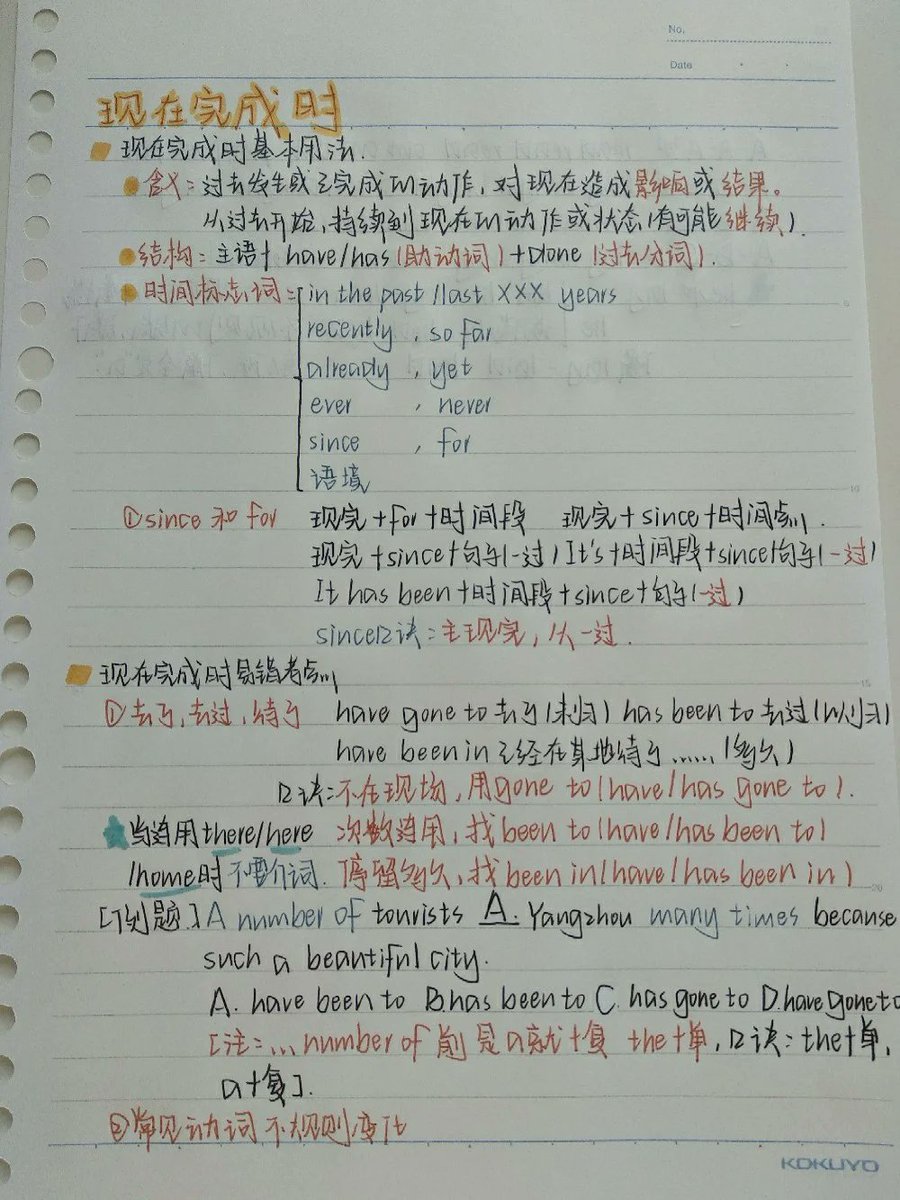 No.
Date
现在完成时
现在完成时基本用法.
含义:过去发生或已完成的动作,对现在造成影响或结果。
从过去开始,持续到现在的动作或状态(有可能继续)
结构:主语+ have/has(助动词)+done(过去分词).
时间标志词: in the past/last XXX years
recently, so far
already, yet
ever , never
since , for
语境
①since和for 现完+for+时间段 现完+since+时间点.
现完+since+句子(一过) It's+时间段+since+句子(一过)
It has been+时间段+since+句子(一过)
since口诀:主现完,从一过.
现在完成时易错考点
①去了,去过,待了 have gone to去了(未归) has been to去过(已归)
have been in已经在某地待了......(多久)
口诀:不在现场,用gone to(have/has gone to).
当遇用there/here 次数连用,找been to(have/has been to)
/home时不要介词. 停留多久,找been in(have/has been in)
[例题.]A number of tourists A. Yangzhou many times because
such a beautiful city.
A. have been to B.has been to C. has gone to D.have gone to
[注:... number of前是a就+复 the+单,口诀:the+单,
a+复].
②常见动词不规则变化
KOKUYO